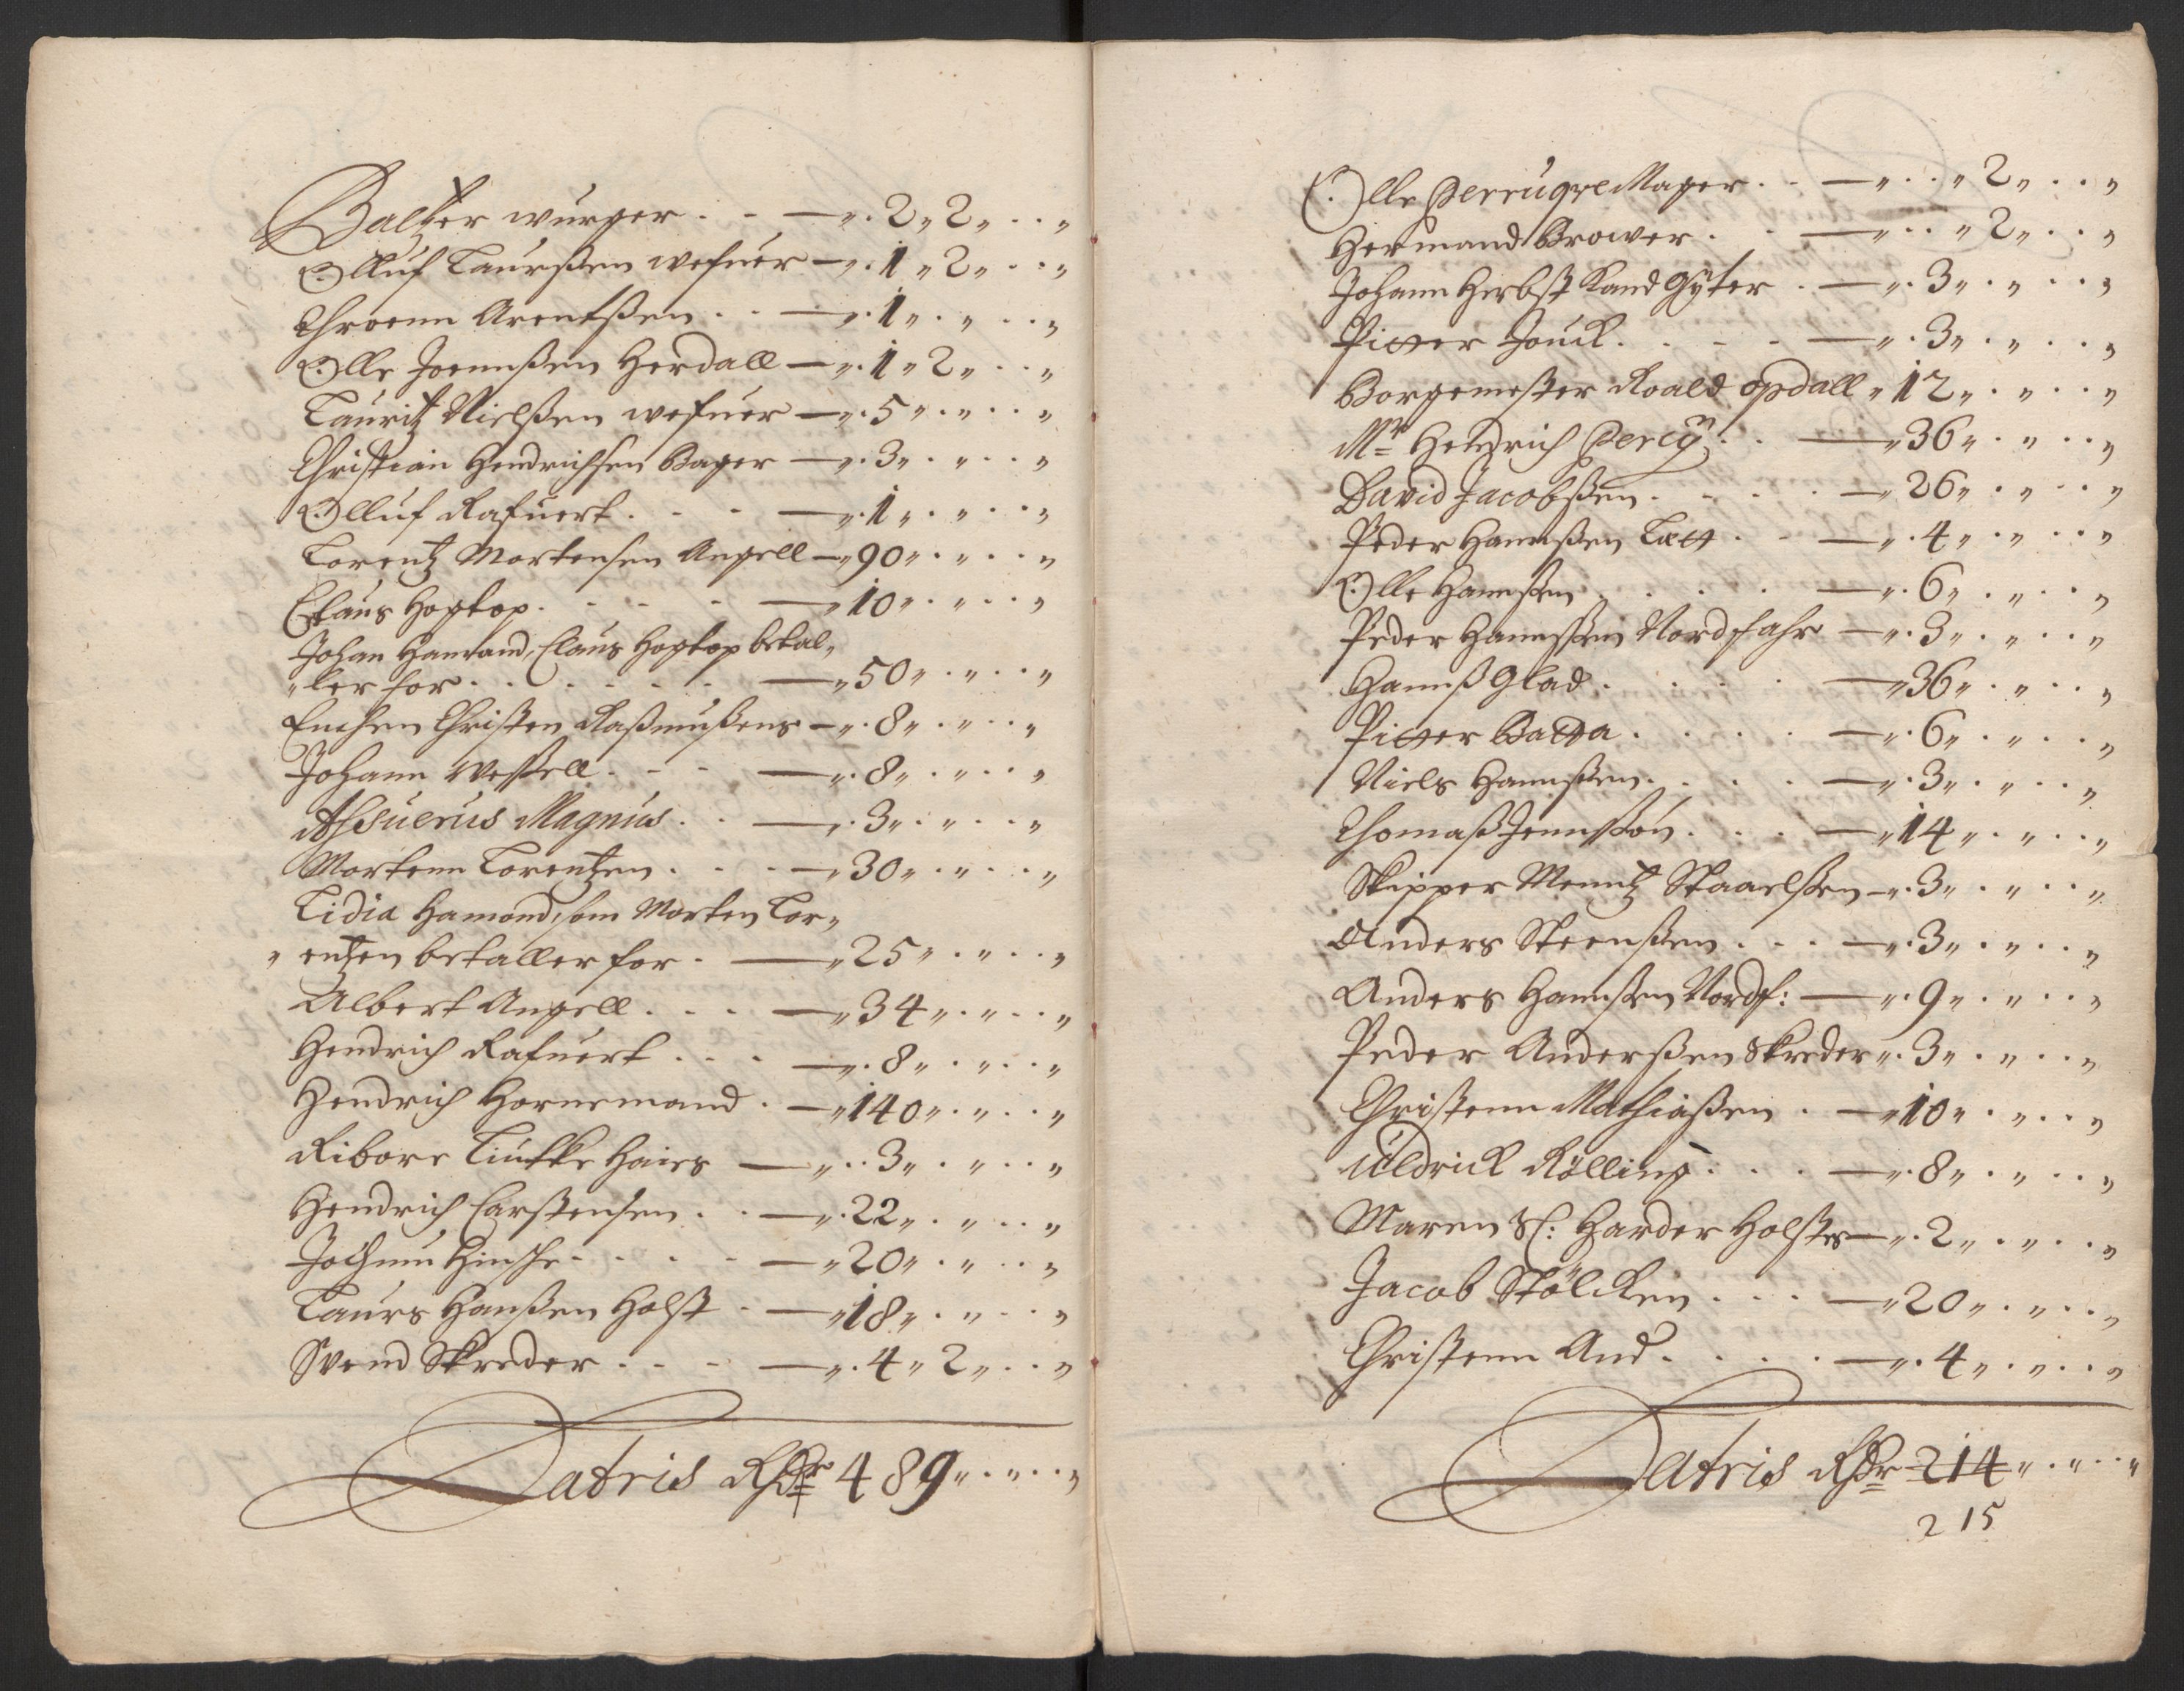 Baltzer wurger . . — „. 2 „ 2 „ . . „
Olluf Laurssen wefuer — „. 1 „ 2 „ . . „
Throenn Arentssen . . — „. 1 „ . „ . . „
Olle Joennssen Herdall — „. 1 „ 2 „ . . „
Lauritz Nielssen wefuer — „. 5 „ . „ . . „
Christian Hendrichsen Bager — „. 3 „ . „ . . „
Olluf Rafuert . . . — „. 1 „ . „ . . „
Lorentz Mortensen Angell — „ 90 „ . „ . . „
Claus Hopkop . . . . — „ 10 „ . „ . . „
Johan Hamand, Claus Hopkop betal„
„ler for . . . . . . — „ 50 „ . „ . . „
Enchen Christen Rassmussens — „. 8 „ . „ . . „
Johann Wessell . . . — „. 8 „ . „ . . „
Assuerus Magnus . . — „. 3 „ . „ . . „
Mortenn Lorentzen . . . — „ 30 „ . „ . . „
Lidia Hamond, som Morten Lor„
„ entzen betaller for . — „ 25 „ . „ . . „
Albert Angell . . . — „ 34 „ . „ . . „
Hendrich Rafuert . . . — „. 8 „ . „ . . „
Hendrich Hornemand . — „ 140 „ . „ . . „
Ribore Haies — „ . . 3 „ . „ . . „
Hendrich Carstensen . . — „. 22 „ . „ . . „
Jochum Hinsche . . . . — „ 20 „ . „ . . „
Laurs Hanssen Holst . — „ 18 „ . „ . . „
Svend Skreder . . . — „. 4 „ 2 „ . . „
Latris Rdr 489 „ . „ . . „
Olle PerruqveMager . . — „ . . „ 2 „ . . „
Hermand Brower . . — „ . . „ 2 „ . . „
Johann Herbst Kandgÿter . — „. 3 „ . „ . . „
Pitter Jouck . . . . — „. 3 „ . „ . . „
Borgemester Roald Opdall „ 12 „ . „ . . „
Mr Hendrich Percÿ . . — „ 36 „ . „ . . „
David Jacobssen . . . . — „ 26 „ . „ . . „
Peder Hannssen Lett . . — „. 4 „ . „ . . „
Olle Hannssen . . . . — „. 6 „ . „ . . „
Peder Hannssen Nordfahr — „. 3 „ . „ . . „
Hannss Glad . . . . — „ 36 „ . „ . . „
Pitter Batta . . . . — „. 6 „ . „ . . „
Niels Hannssen . . . . — „. 3 „ . „ . . „
Thomass Jennsson . . . — „ 14 „ . „ . . „
Skipper Mentz Staaelssen — „. 3 „ . „ . . „
Anders Steenssen . . . — „. 3 „ . „ . . „
Anders Hannssen Nordf: — „. 9 „ . „ . . „
Peder Anderssen Skreder „. 3 „ . „ . . „
Christenn Mathiassen . — „ 10 „ . „ . . „
Uldrick Rölling . . . — „. 8 „ . „ . . „
Maren Sl: Harder Holstes — „. 2 „ . „ . . „
Jacob Stölcken . . . — „ 20 „ . „ . . „
Christenn Aud . . . . — „. 4 „ . „ . . „
Latris Rdr 214 „ . „ . . „
215